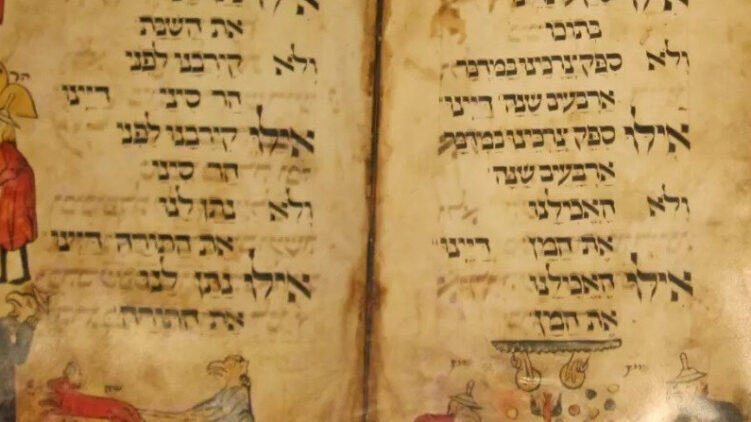 אילו
בתוכו
ולא סיפק צרכינו במדבר
ארבעים שנה דיינו
אילו ספק צרכינו במדבר
ארבעים שנה
ולא האכילנו
את המן דיינו
אילו האכילנו
את המן
אילו
את השבת
ולא קירבנו לפני
הר סיני דיינו
אילו קירבנו לפני
הר סיני
ולא נתן לנו
את התורה דיינו
אילו נתן לנו
את התורה